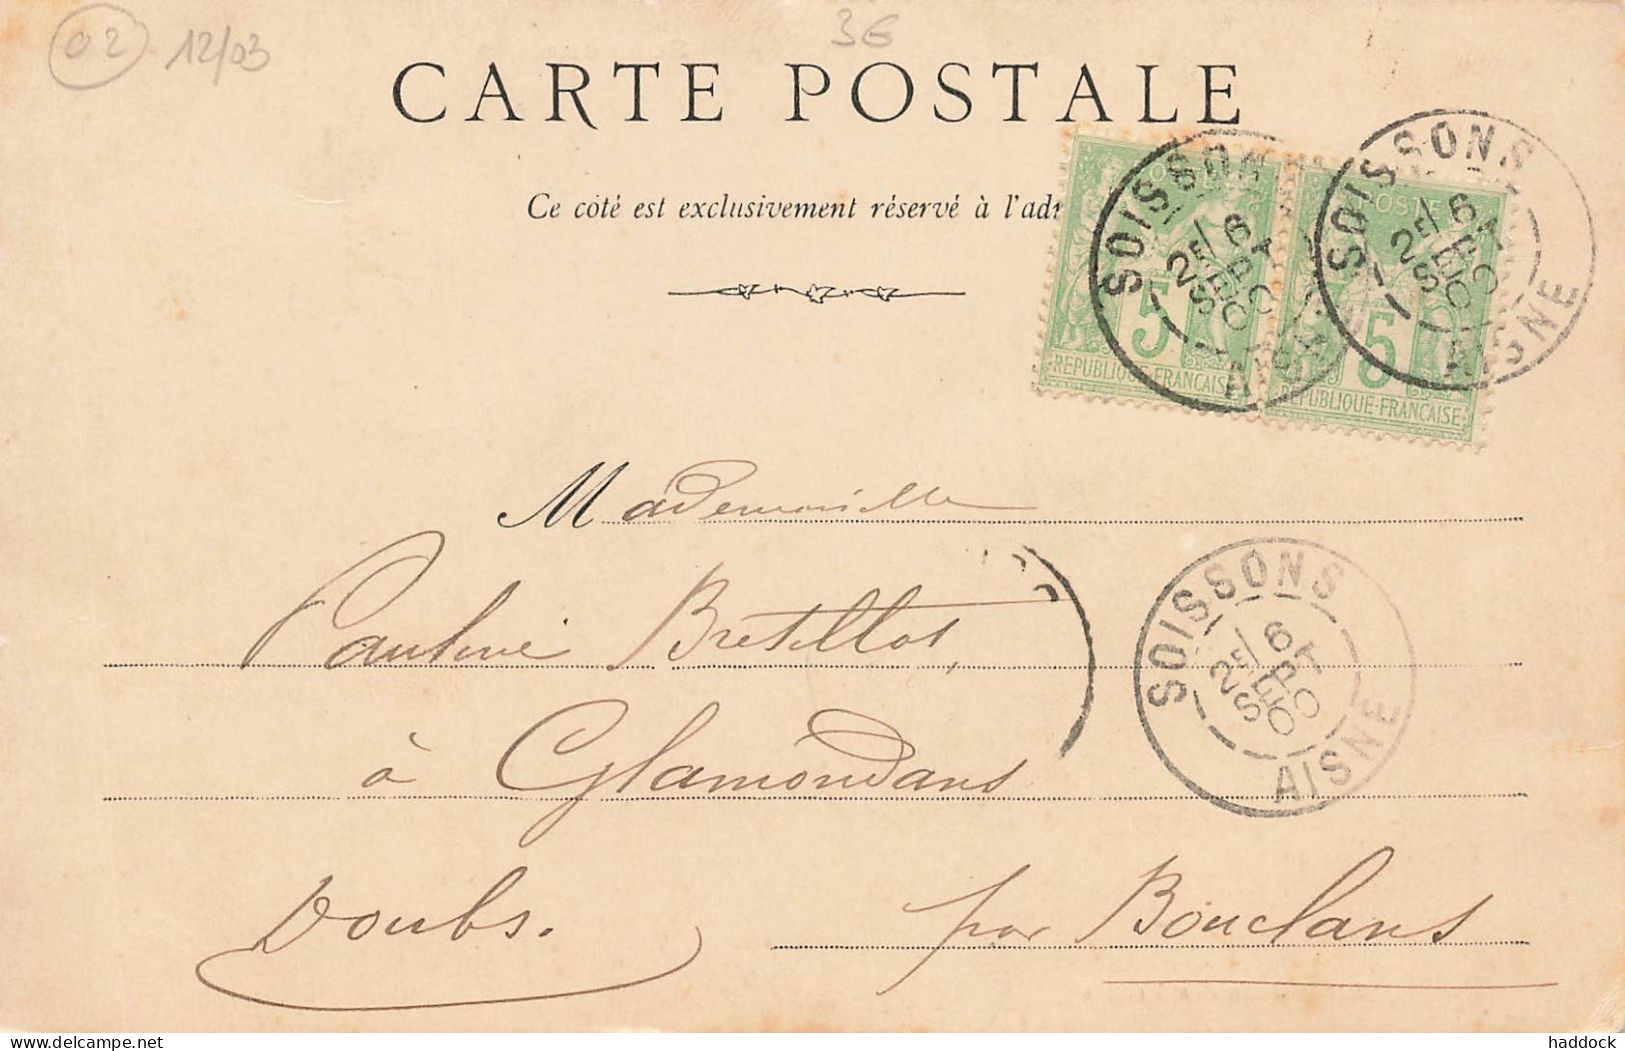 02 12/03
3€
CARTE POSTALE
Ce côté est exclusivement réservé à l'adr
5
REPUBLIQUE-FRANCAIS
5
REPUBLIQUE-FRANCAISE
SOISSONS
2E/6
SEPT
00
AISNE
SOISSONS
2E/6
SEPT
00
AISNE
Mademoiselle
Pauline Bretillot,
à Glamondans
Doubs. par Bouclans
SOISSONS
2E/6
SEPT
00
AISNE
delcampe.net
haddock